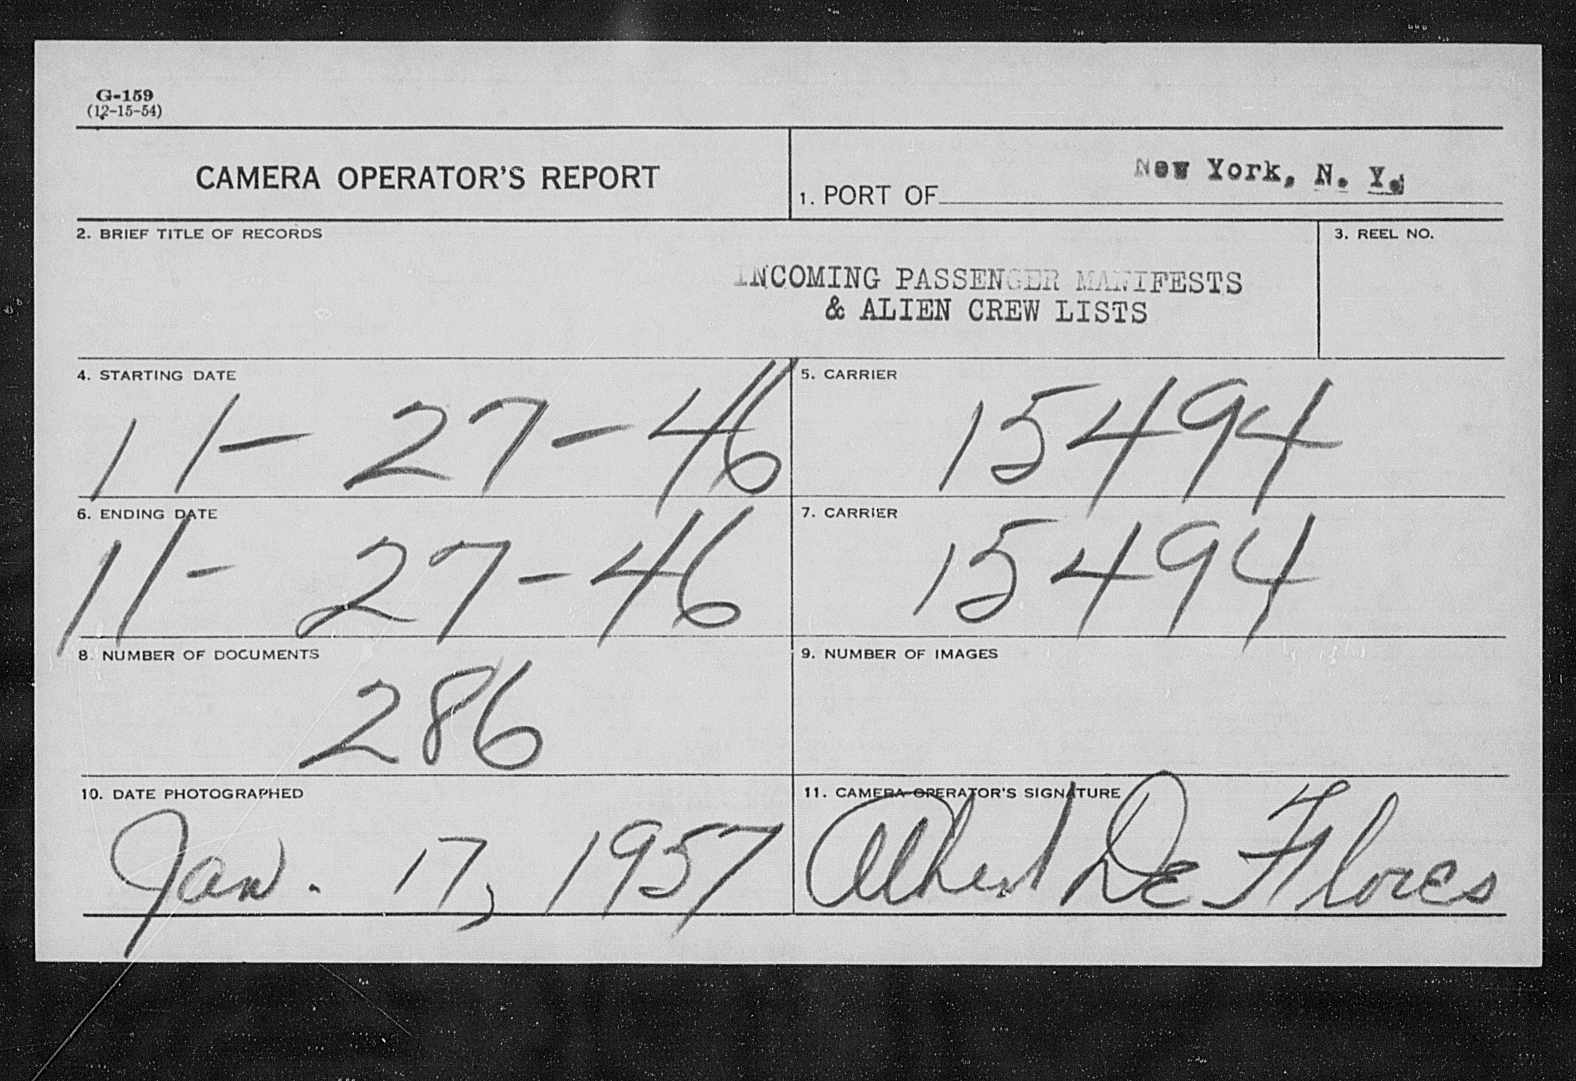 G-159
(12-15-54)
CAMERA OPERATOR'S REPORT
1. PORT OF New York, N. Y.
2. BRIEF TITLE OF RECORDS
INCOMING PASSENGER MANIFESTS
& ALIEN CREW LISTS
3. REEL NO.
4. STARTING DATE
11-27-46
5. CARRIER
15494
6. ENDING DATE
11-27-46
7. CARRIER
15494
8. NUMBER OF DOCUMENTS
286
9. NUMBER OF IMAGES
10. DATE PHOTOGRAPHED
Jan. 17, 1957
11. CAMERA OPERATOR'S SIGNATURE
Albert De Flores